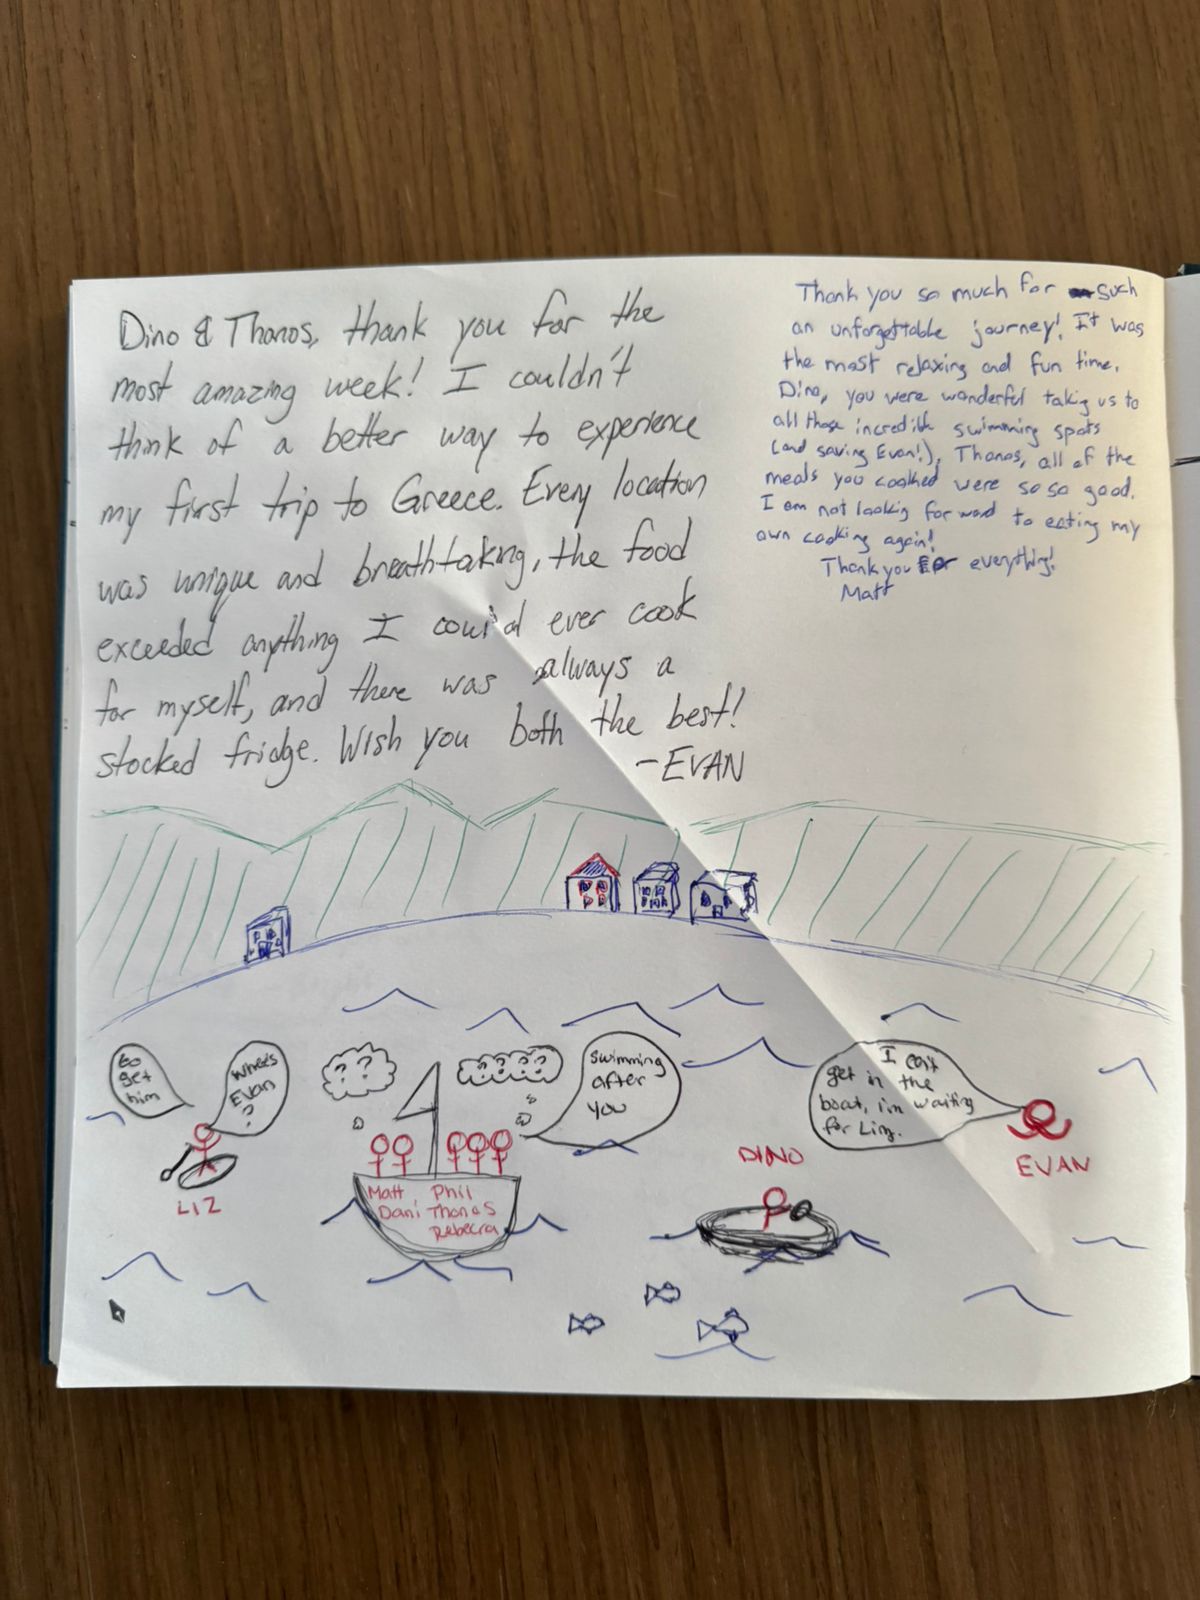 Dino & Thanos, thank you for the
most amazing week! I couldn't
think of a better way to experience
my first trip to Greece. Every location
was unique and breathtaking, the food
exceeded anything I could ever cook
for myself, and there was always a
stocked fridge. Wish you both the best!
-EVAN
Thank you so much for such
an unforgettable journey! It was
the most relaxing and fun time.
Dino, you were wonderful taking us to
all those incredible swimming spots
(and saving Evan!). Thanos, all of the
meals you cooked were so so good.
I am not looking forward to eating my
own cooking again!
Thank you for everything!
Matt
Go
get
him
Wheres
Evan
?
? ?
? ? ? ?
Swimming
after
you
I can't
get in the
boat, i'm waiting
for
LIZ
Matt Phil
Dani Thanos
Rebecca
DINO
EVAN